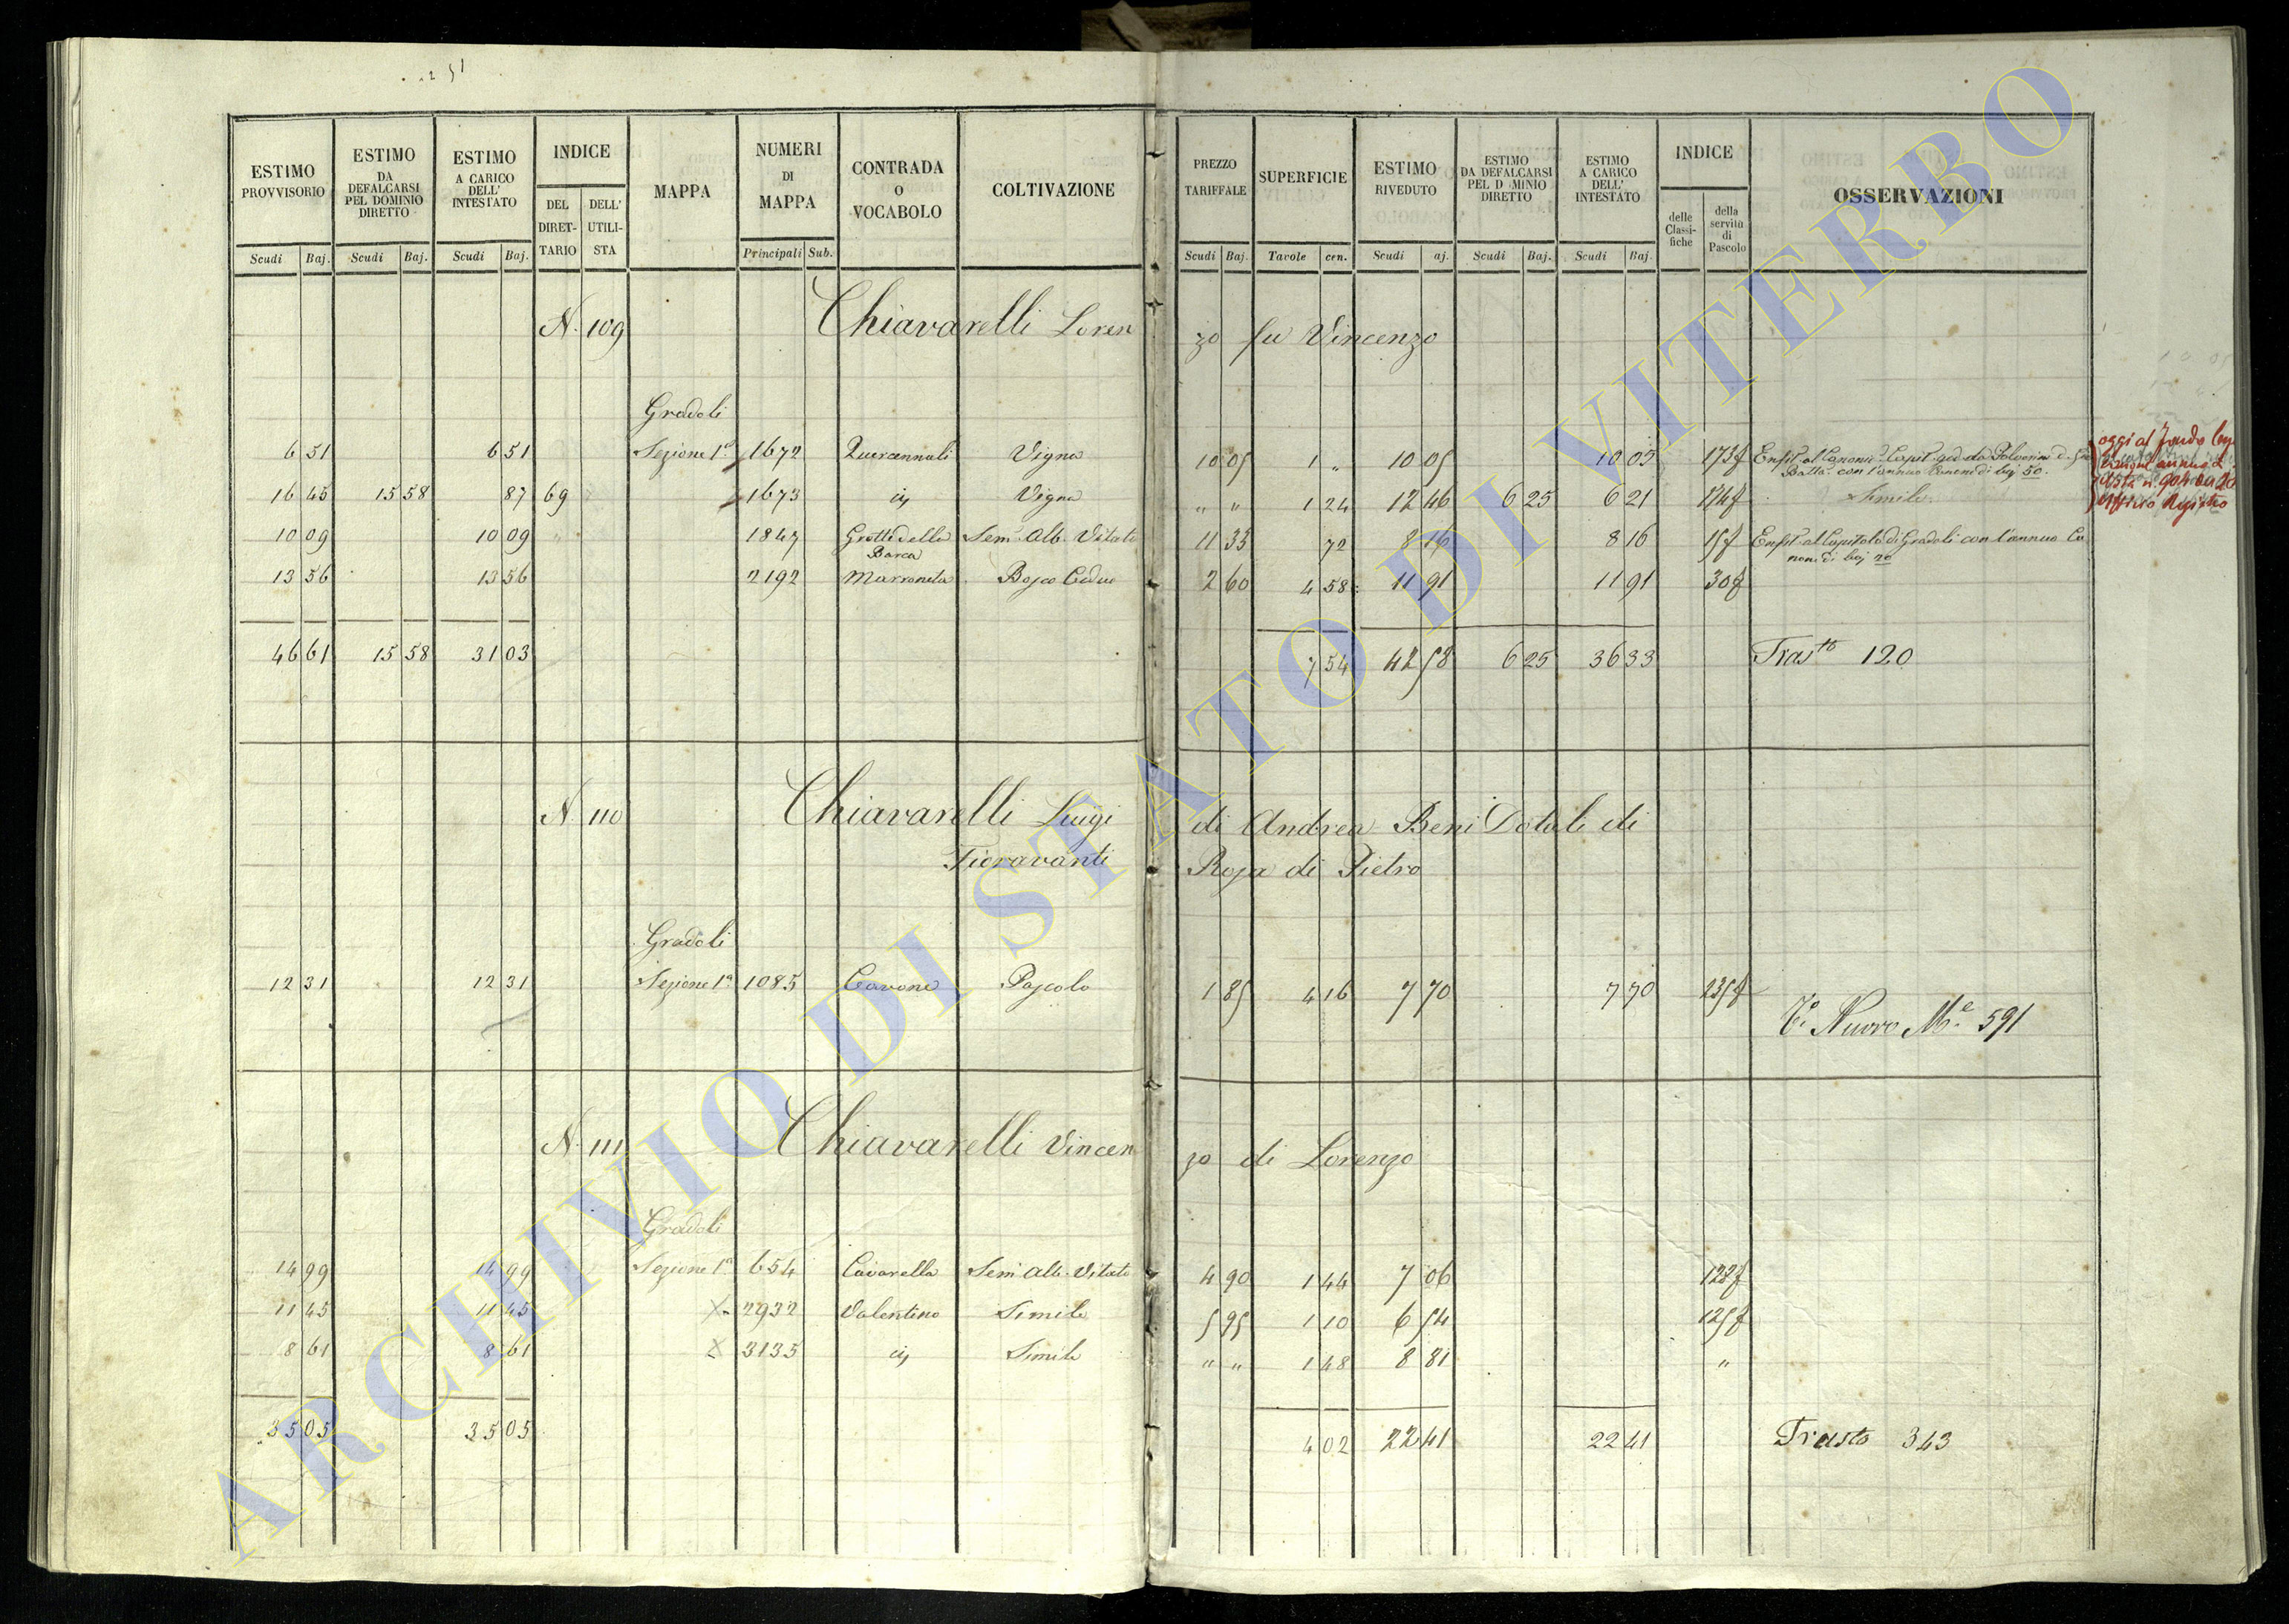 251
ESTIMO PROVVISORIO | ESTIMO DA DEFALCARSI PEL DOMINIO DIRETTO | ESTIMO A CARICO DELL' INTESTATO | INDICE | MAPPA | NUMERI DI MAPPA | CONTRADA O VOCABOLO | COLTIVAZIONE | PREZZO TARIFFALE | SUPERFICIE | ESTIMO RIVEDUTO | ESTIMO DA DEFALCARSI PEL D MINIO DIRETTO | ESTIMO A CARICO DELL' INTESTATO | INDICE | OSSERVAZIONI
DEL DIRETTARIO | DELL' UTILISTA | delle Classifiche | della servita di Pascolo
Scudi Baj. | Scudi Baj. | Scudi Baj. | Principali Sub. | Scudi Baj. | Tavole cen. | Scudi aj. | Scudi Baj. | Scudi Baj.
N. 109 Chiavarelli Lorenzo fu Vincenzo
Gradoli
6 51 | 6 51 | Sezione 1a | 1672 | Quercennali | Vigna | 10 05 | 1 „ | 10 05 | 10 05 | 173f | Enfit. al Canonic. Capit.
Batta con l'annuo Canone di baj 50.
16 45 | 15 58 | 87 | 69 | 1673 | id | Vigna | „ „ | 1 24 | 12 46 | 6 25 | 6 21 | 174f | Simile
oggi al
10 09 | 10 09 | 1847 | Grotte della Barca | Sem. Alb. Vitato | 11 33 | 72 | 8 16 | 8 16 | 15f | Enfit. al Capitolo di Gradoli con l'annuo Canone di baj 20
13 56 | 13 56 | 2192 | Marroneta | Bosco Ceduo | 2 60 | 4 58 | 11 91 | 11 91 | 30f
46 61 | 15 58 | 31 03 | 7 54 | 42 58 | 6 25 | 36 33 | Trasto 120
N. 110 Chiavarelli Luigi di Andrea Beni Dotali di
Fioravanti Rosa di Pietro
Gradoli
12 31 | 12 31 | Sezione 1a | 1085 | Cavone | Pascolo | 1 85 | 4 16 | 7 70 | 7 70 | 235f
Vi Nuovo Me 591
N. 111 Chiavarelli Vincenzo di Lorenzo
Gradoli
14 99 | 14 99 | Sezione 1a | 654 | Cavarella | Sem. Alb. Vitato | 4 90 | 1 44 | 7 06 | 128f
11 45 | 11 45 | 2932 | Valentino | Simile | 5 95 | 1 10 | 6 54 | 125f
8 61 | 8 61 | 3135 | id | Simile | „ „ | 1 48 | 8 81 | „
35 05 | 35 05 | 4 02 | 22 41 | 22 41 | Trasto 343
ARCHIVIO DI STATO DI VITERBO